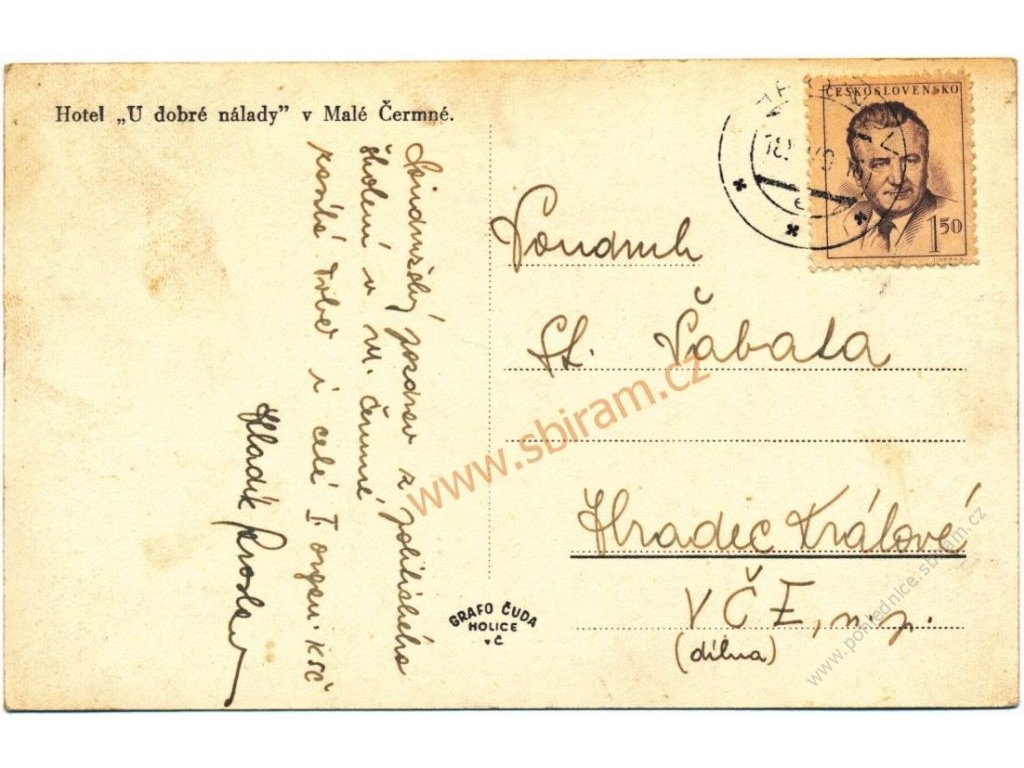 Hotel „U dobré nálady” v Malé Čermné.
Soudružský pozdrav z politického
školení v M. Čermné
zasílá Tobě i celé I. organ. KSČ
Hladík
ČESKOSLOVENSKO
1 50
Soudruh
St. Šabata
Hradec Králové
VČE, n.p.
(dílna)
GRAFO ČUDA
HOLICE
v Č
www.sbiram.cz
www.pohlednice.sbiram.cz